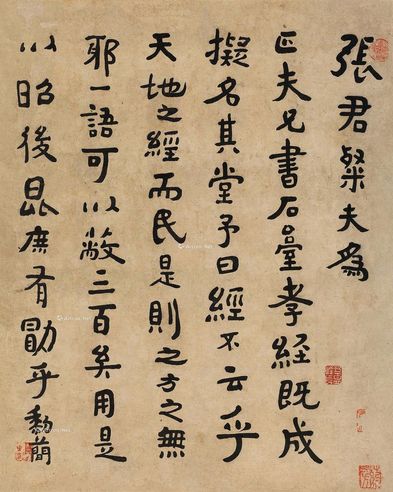 張君粲夫為
匹夫兄書石臺孝經既成
擬名其堂予曰經不云乎
天地之經而民是則之方之無
邪一語可以蔽三百矣用是
以昭後昆庶有勖乎勳簡